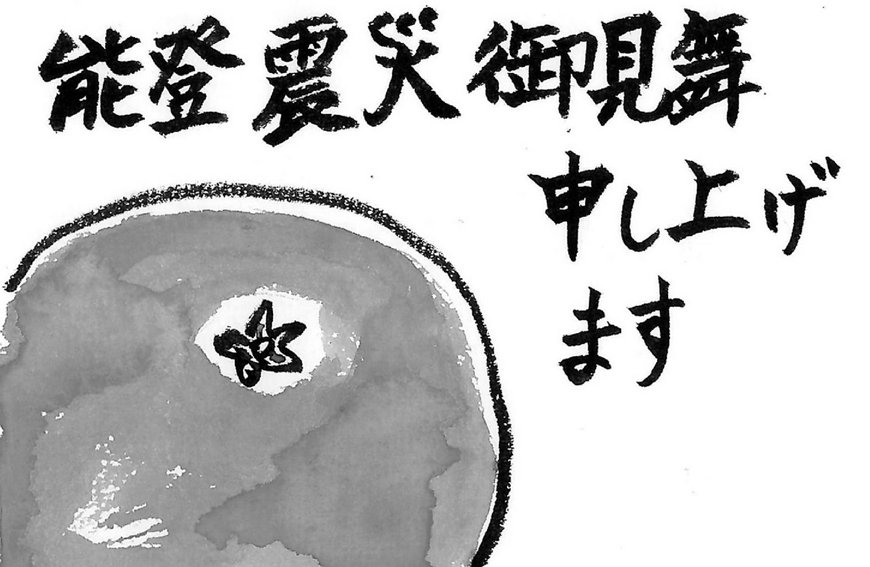 能登震災御見舞
申し上げ
ます